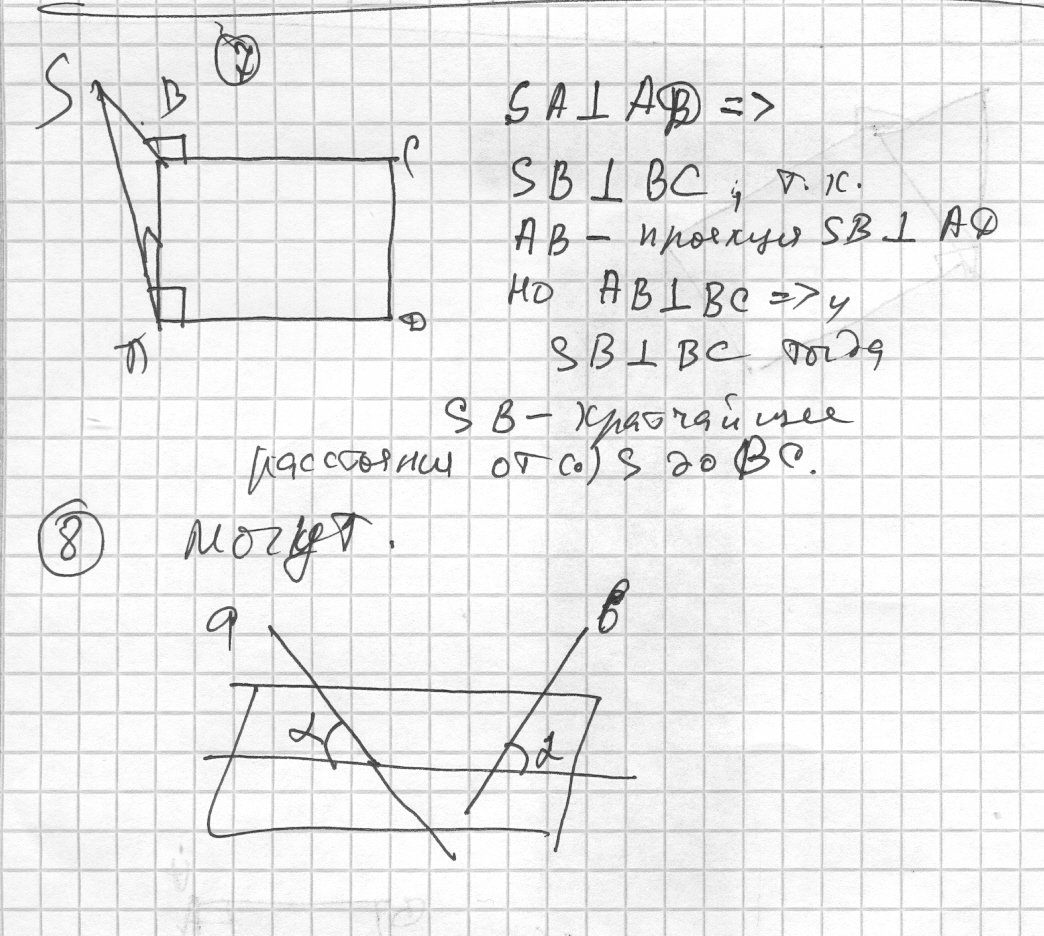 7
S B C
A D
SA⊥AB =>
SB⊥BC, т.к.
AB - проекция SB⊥AD
но AB⊥BC =>
SB⊥BC тогда
SB - кратчайшее
расстояния от S до BC.
8 могут.
a b
α α